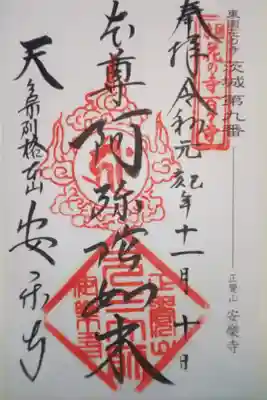 東国花の寺 茨城第九番
正覺山 安樂寺
奉拝 令和元己亥年十一月十日
本尊 阿弥陀如来
天台宗別格本山 安楽寺